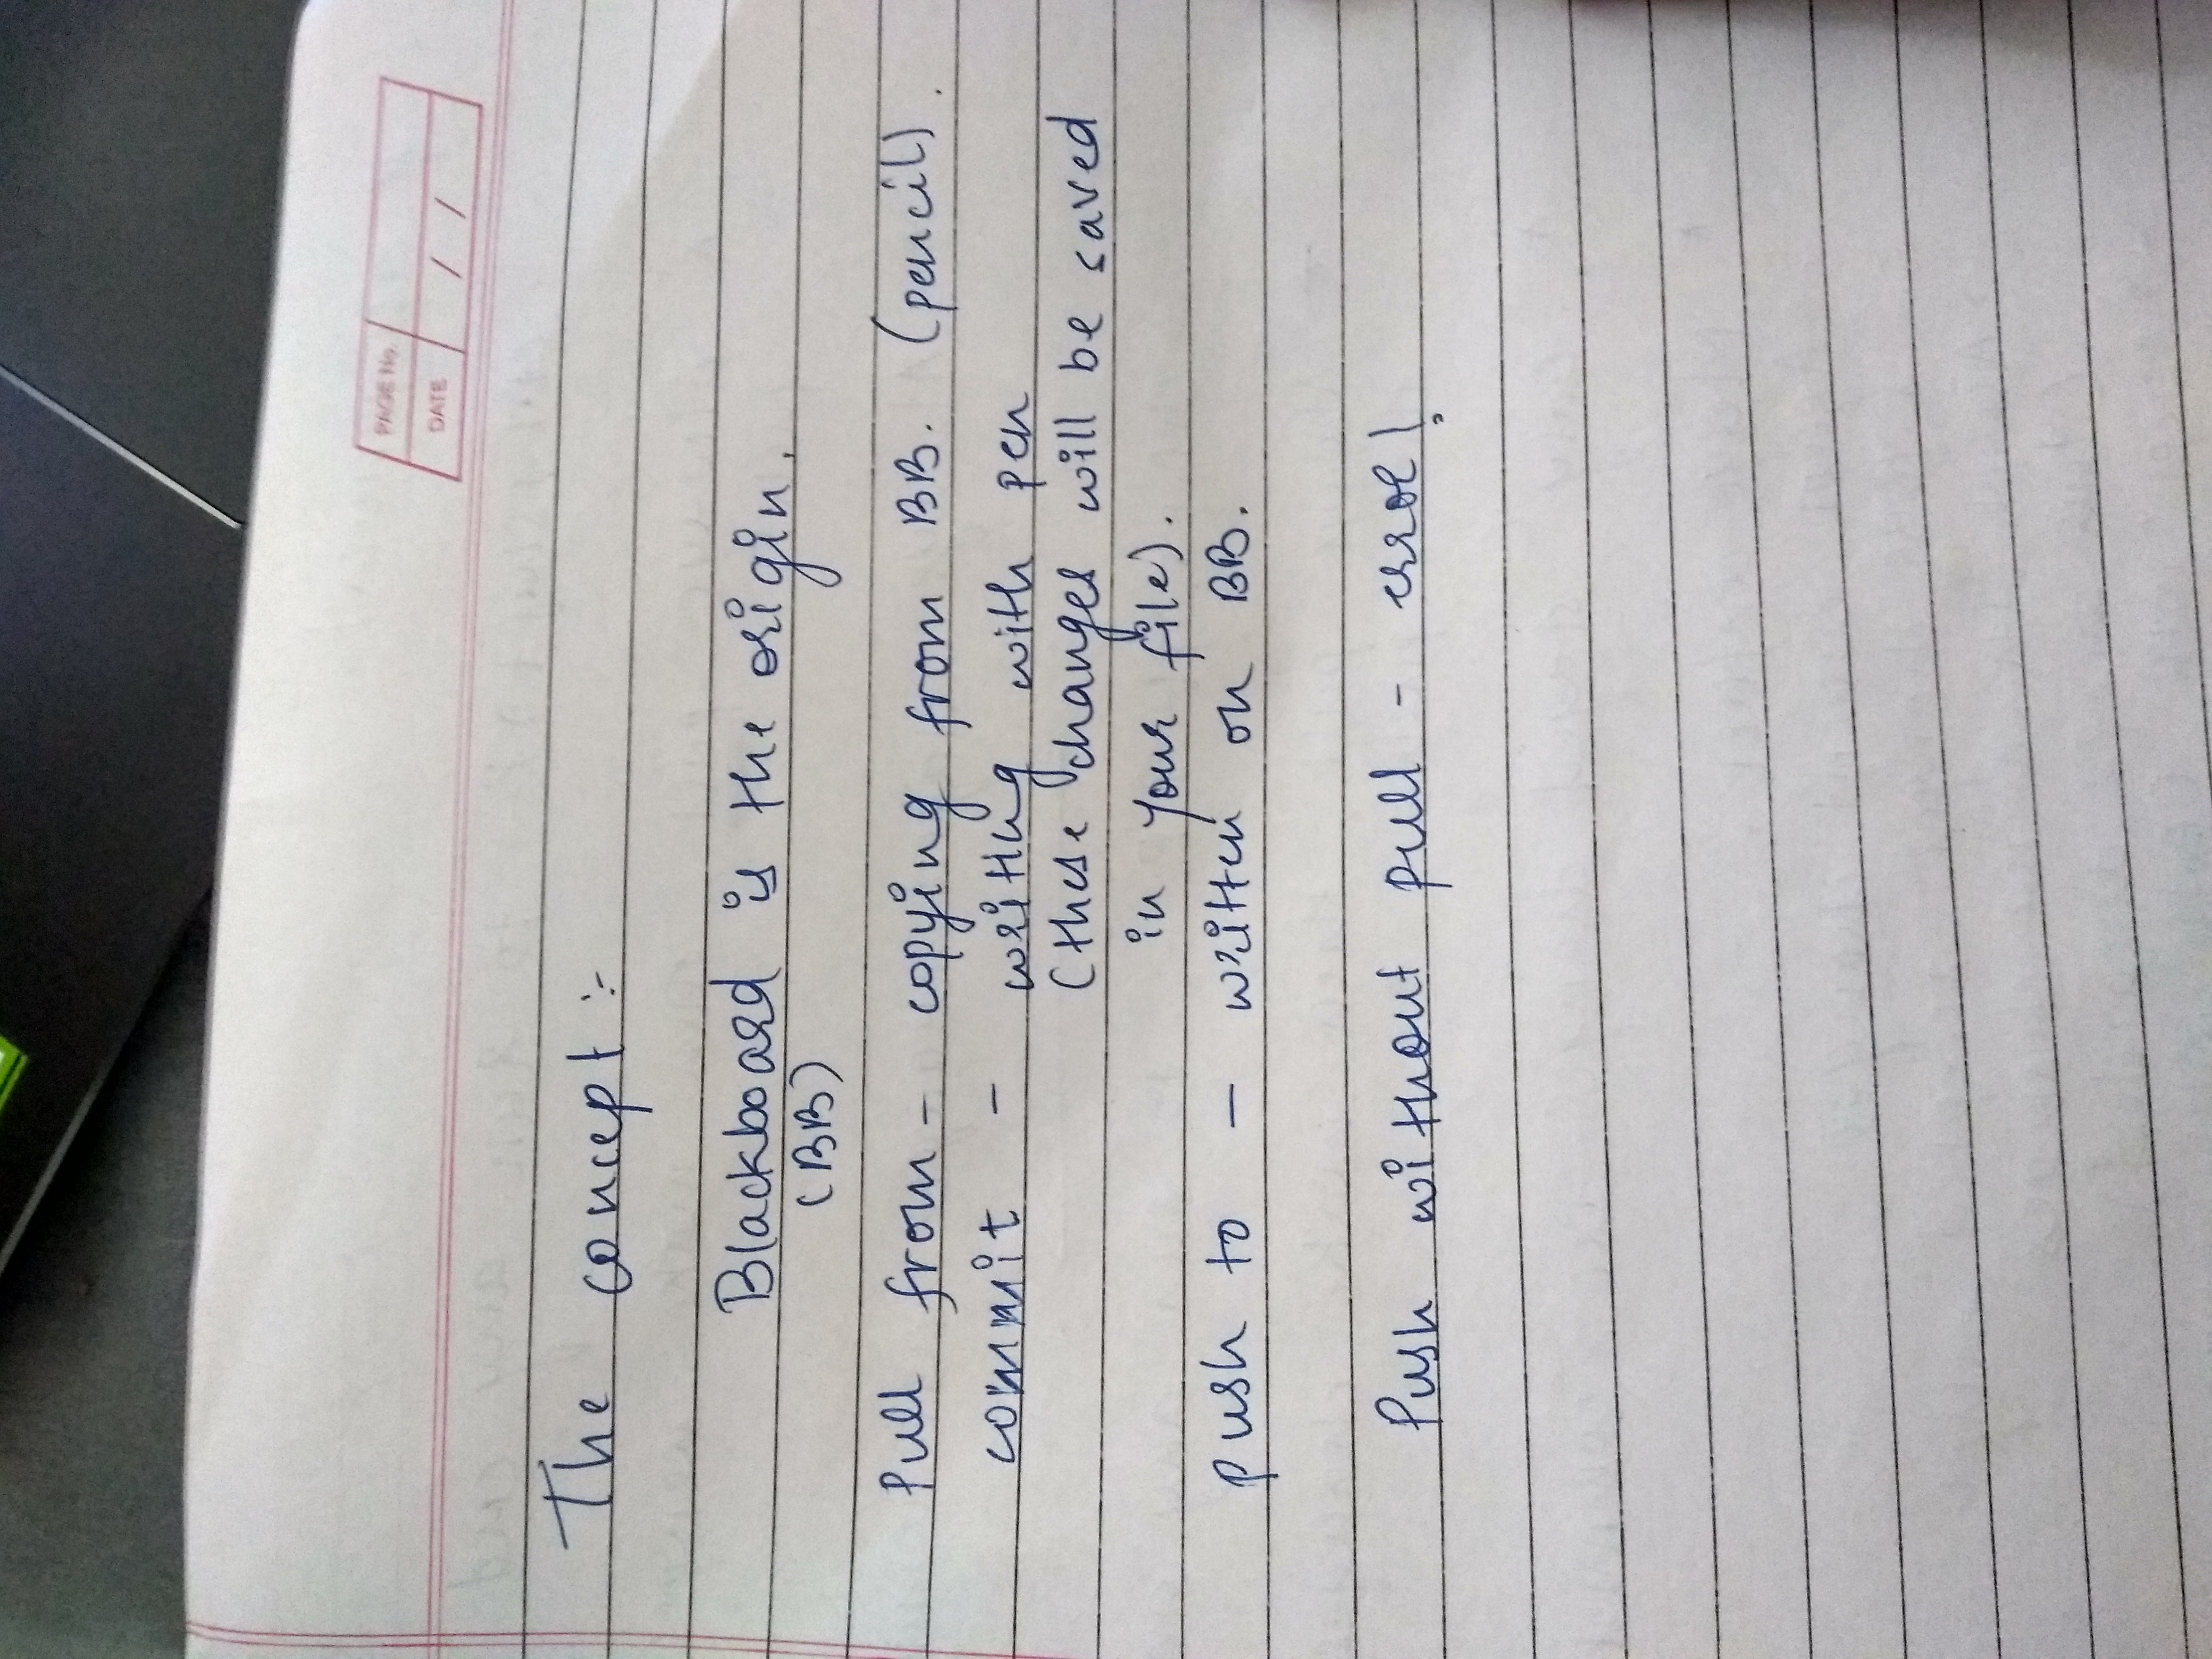 PAGE No.
DATE / /
The concept :-
Blackboard is the origin.
(BB)
Pull from - copying from BB. (pencil).
commit - writing with pen
(these changes will be saved
in your file).
push to - written on BB.
Push without pull - error!